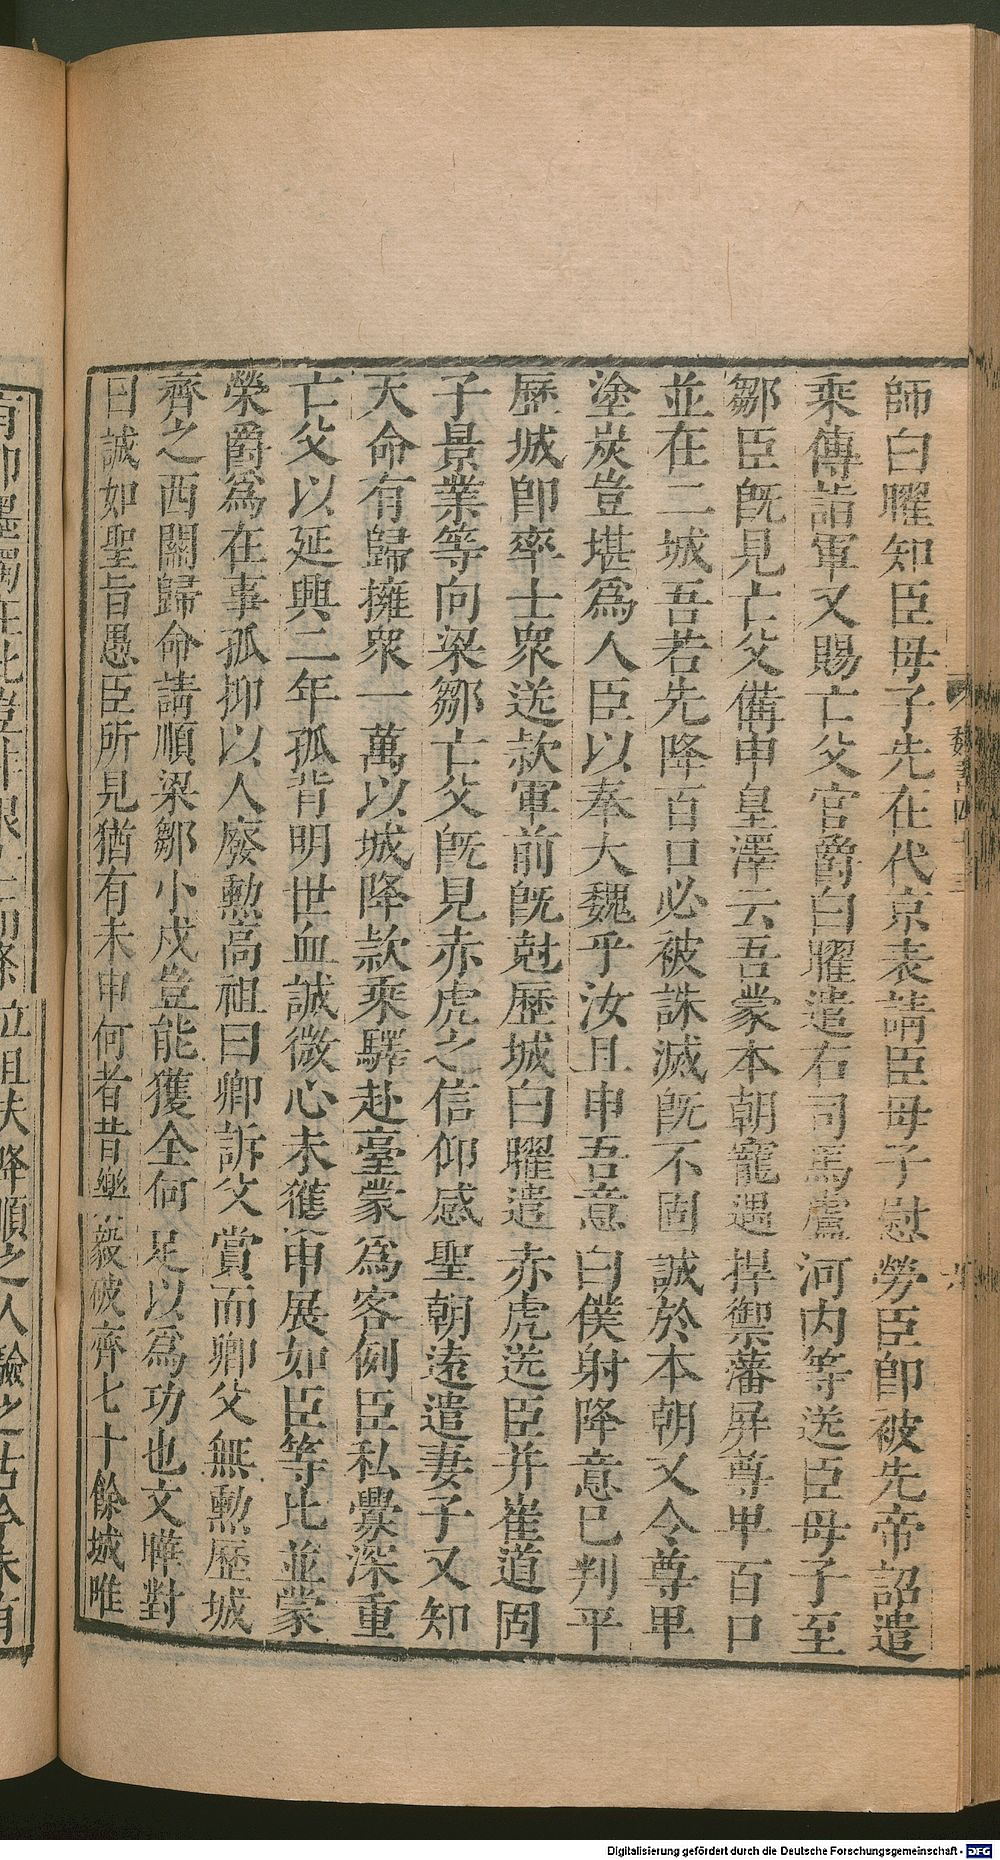 師白曜知臣母子先在代京表請臣母子慰勞臣卽被先帝詔遣
乘傳詣軍又賜亡父官爵白曜遣右司馬盧河内等送臣母子至
鄒臣旣見亡父備申皇澤云吾蒙本朝寵遇捍禦藩屏尊卑百口
並在二城吾若先降百口必被誅滅旣不固誠於本朝又令尊卑
塗炭豈堪爲人臣以奉大魏乎汝且申吾意白僕射降意已判平
歷城卽率士衆送款軍前旣尅歷城白曜遣赤虎送臣并崔道固
子景業等向梁鄒亡父旣見赤虎之信仰感聖朝遠遣妻子又知
天命有歸擁衆一萬以城降款乘驛赴臺蒙爲客例臣私釁深重
亡父以延興二年孤背明世血誠微心未獲申展如臣等比並蒙
榮爵爲在事孤抑以人廢勲高祖曰卿訴父賞而卿父無勲歷城
齊之西關歸命請順梁鄒小戍豈能獲全何足以爲功也文曄對
曰誠如聖旨愚臣所見猶有未申何者昔樂毅破齊七十餘城唯
魏書四十三
泣且夫降順之人驗之古今未有
Digitalisierung gefördert durch die Deutsche Forschungsgemeinschaft - DFG